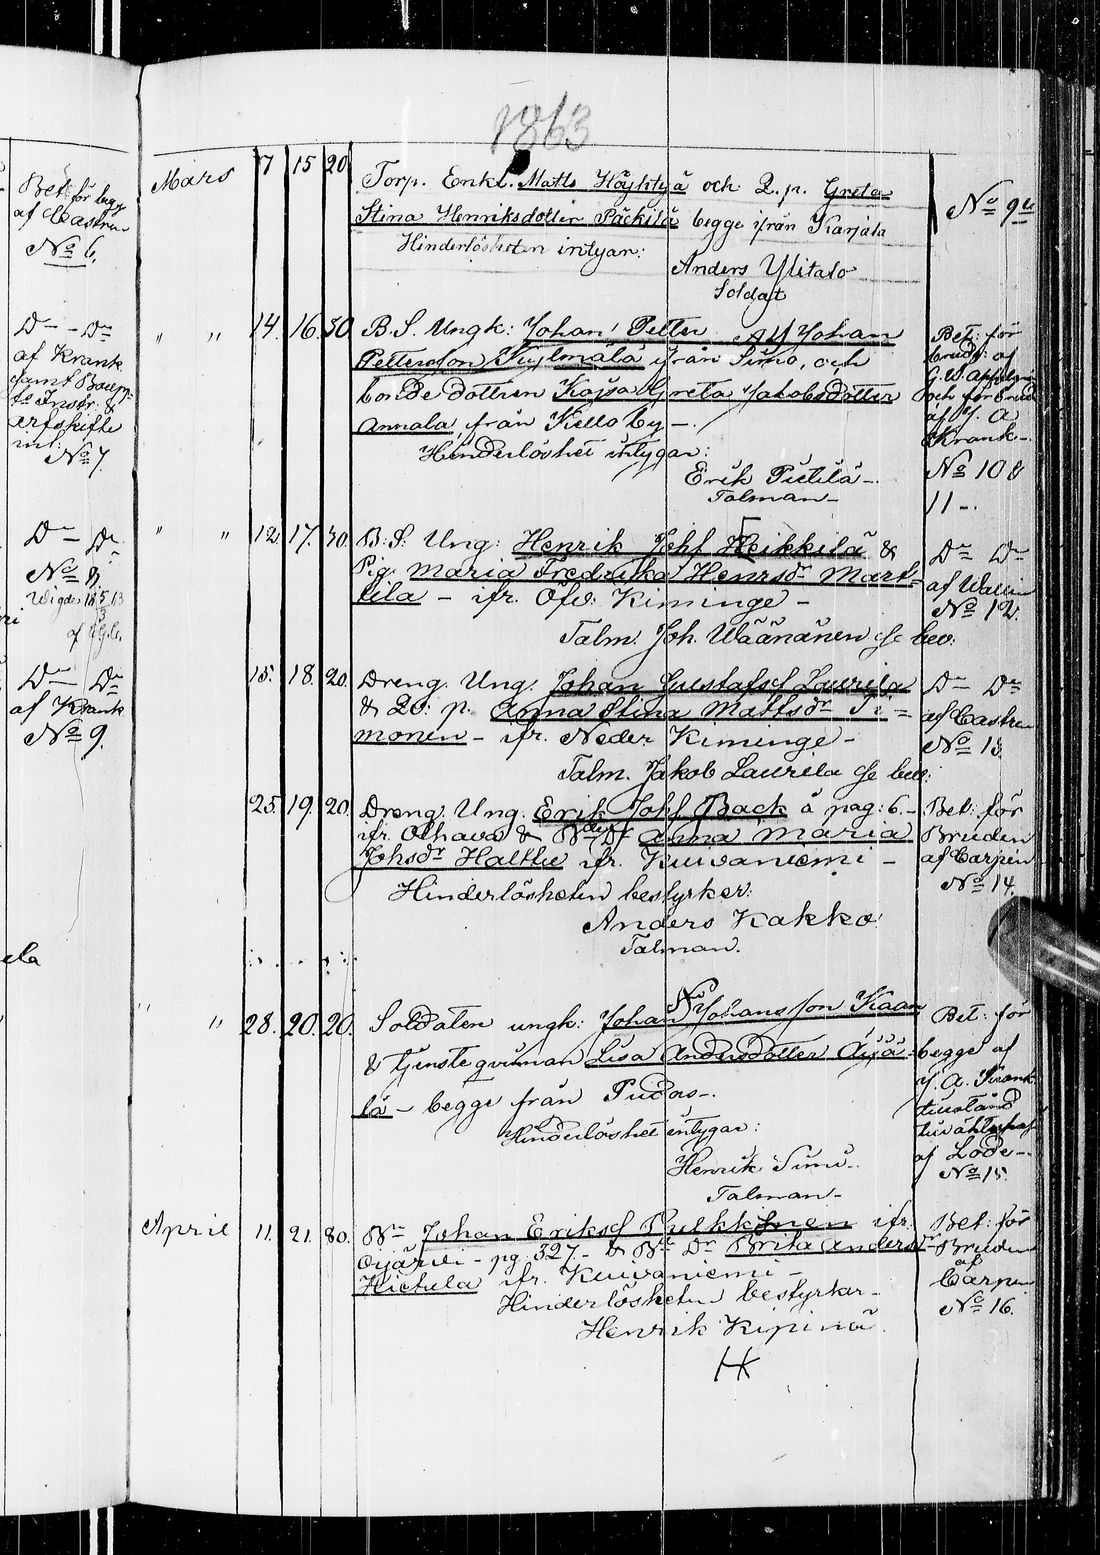 1863
Bet: för begge
af Castren
No 6.
Dn - Dn
af Krank
samt Baupp:
arfskifte
No 7.
Dn - Dn
No 8,
Dn - Dn
af Krank
No 9.
ela
Mars 7 15 20 Torp. Enkl. Matts Höyhtyä och Q. p. Greta
Stina Henriksdotter Päckilä begge från Karjala
Hinderlösheten intygar:
Anders Ylitalo
Soldat
No 9
" " 14. 16. 50. B. S. Ungk: Johan Petter Johan
Pettersson Kylmälä ifrån Simo, och
bonde dottren Kajsa Greta Jakobsdotter
Annala, från Kello by -.
Hinderlöshet intygar:
Erik Pietilä -.
Talman -
Bet: för
brud: af
G. W.
och för brud
af J. A
Krank -.
No 10 &
11 -.
" " 12. 17. 30. B: S: Ung: Henrik Johs Heikkilä &
Pig. Maria Fredrika Henrsdr Mart-
tila - ifr. Öfv: Kiminge -
Talm. Joh. Wäänänen bev:
Dn Dn
af Wallin
No 12.
15. 18. 20. Dreng. Ung. Johan Gustafss Laurila
& Qv: p. Anna Stina Mattsdr Ti-
monen - ifr. Neder Kiminge -
Talm. Jakob Laurila bev:
Dn Dn
af Castren
No 13.
25. 19. 20. Dreng. Ung. Erik Johs Back å pag: 6 -
ifr. Olhava & Anna Maria
Johsdr Halttu ifr. Kuivaniemi -
Hinderlösheten bestyrker:
Anders Kakko
Talman.
Bet: för
Bruden
af Carpén
No 14.
" " 28. 20. 20. Soldaten ungk: Johan Johansson Kaan
& tjenste qvinnan Lisa Andersdotter Äijä-
lä - begge från Pudas -.
Hinderlöshet intygar:
Henrik Simu -.
Talman -
Bet: för
begge af
J. A. Krank
af Lode -.
No 15.
April 11. 21. 80. Johan Erikss Pulkkinen ifr.
Oijärvi - pg 327 - & Dr Brita Andersdr
Hietala ifr. Kuivaniemi -
Hinderlösheten bestyrker -
Henrik Kipinä
Bet: för
Bruden
af
Carpen
No 16.